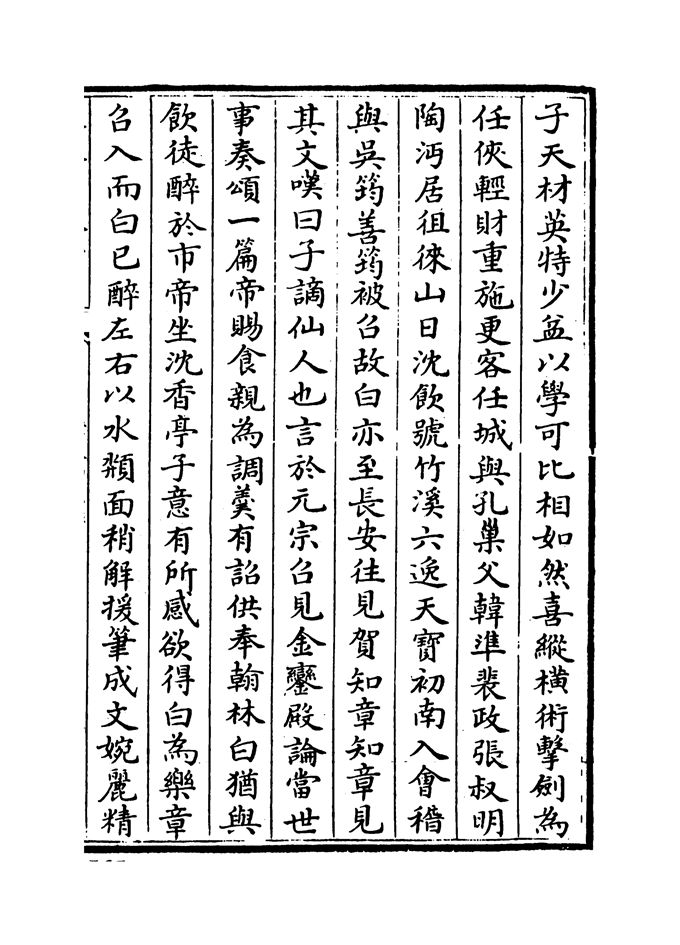 子天材英特少益以學可比相如然喜縱横術擊劍為
任俠輕財重施更客任城與孔巢父韓準裴政張叔明
陶沔居徂徠山日沈飲號竹溪六逸天寶初南入會稽
與吳筠善筠被召故白亦至長安往見賀知章知章見
其文嘆曰子謫仙人也言於元宗召見金鑾殿論當世
事奏頌一篇帝賜食親為調羹有詔供奉翰林白猶與
飲徒醉於市帝坐沈香亭子意有所感欲得白為樂章
召入而白已醉左右以水頮面稍解援筆成文婉麗精